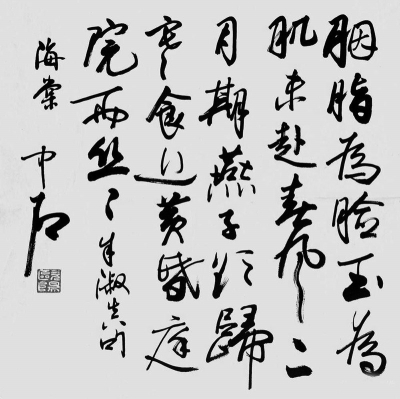 胭脂為臉玉為
肌未赴春風二
月期燕子欲歸
寒食近黄昏庭
院雨丝々朱淑真
海棠 中石